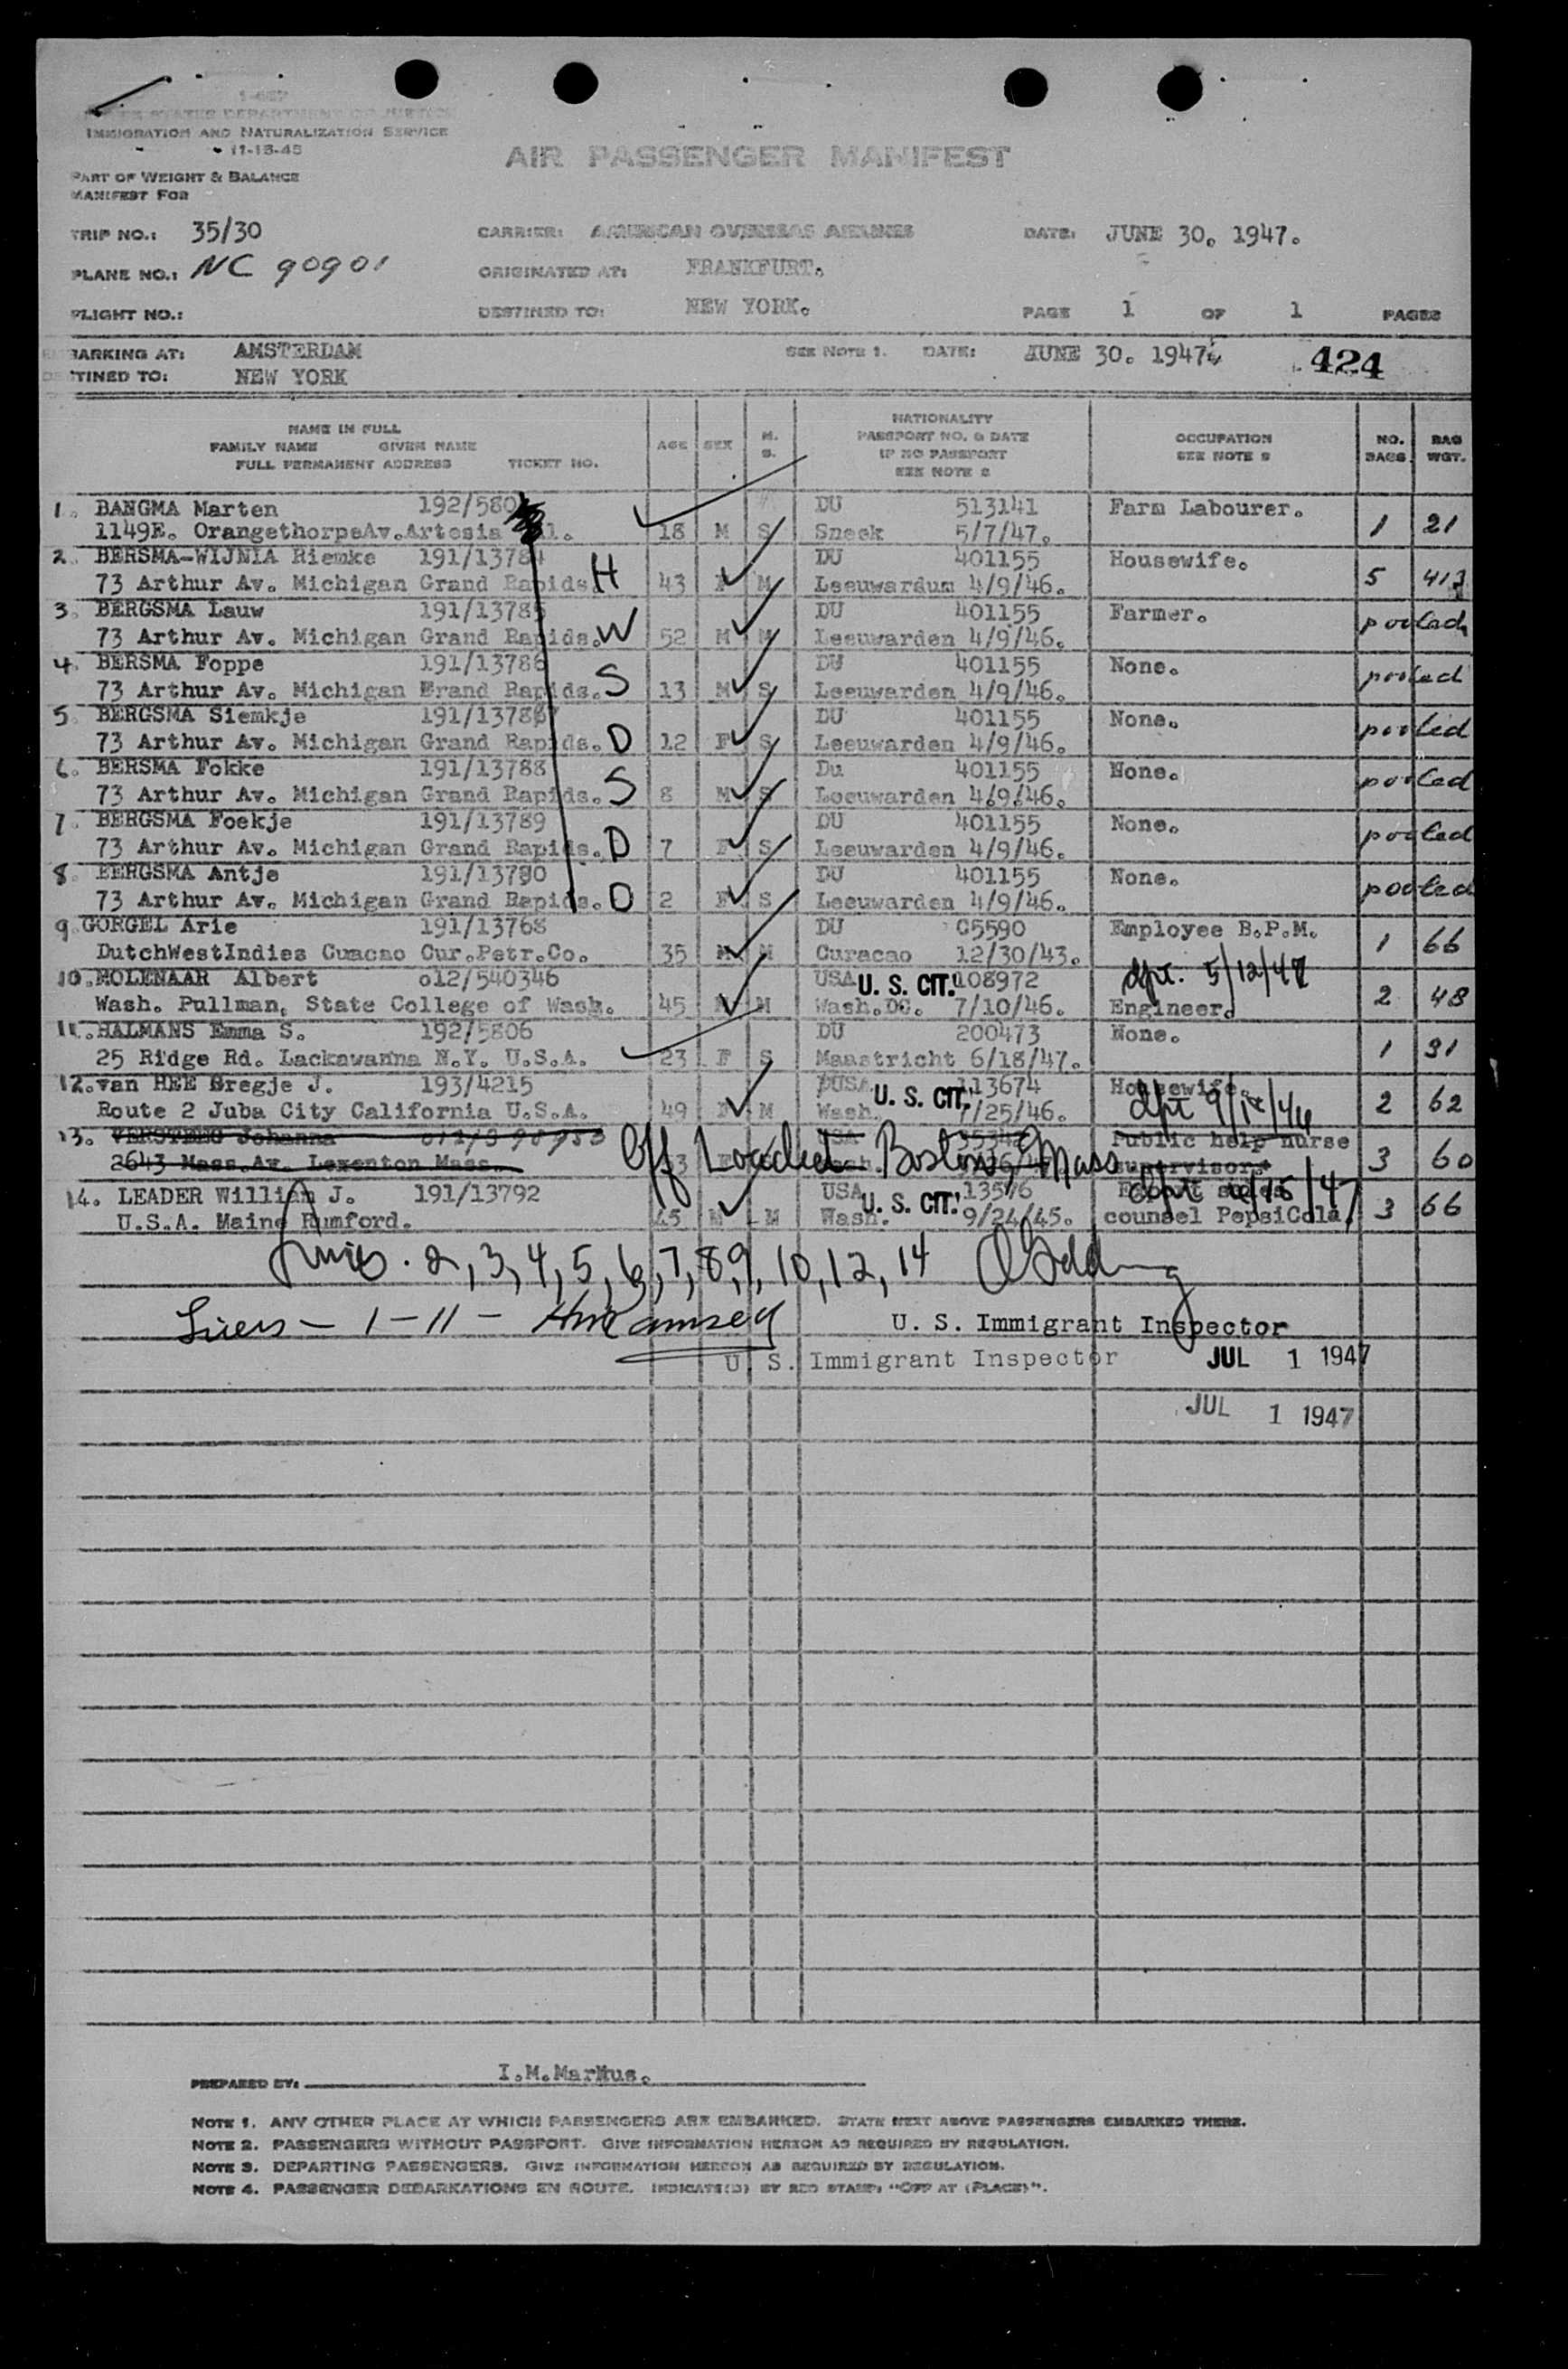 I-657
UNITED STATES DEPARTMENT OF JUSTICE
IMMIGRATION AND NATURALIZATION SERVICE
11-15-45
AIR PASSENGER MANIFEST
PART OF WEIGHT & BALANCE
MANIFEST FOR
TRIP NO.: 35/30 CARRIER: AMERICAN OVERSEAS AIRLINES DATE: JUNE 30. 1947.
PLANE NO.: NC 90901 ORIGINATED AT: FRANKFURT.
FLIGHT NO.: DESTINED TO: NEW YORK. PAGE 1 OF 1 PAGES
EMBARKING AT: AMSTERDAM SEE NOTE 1. DATE: JUNE 30. 1947. 424
DESTINED TO: NEW YORK
NAME IN FULL
FAMILY NAME GIVEN NAME
FULL PERMANENT ADDRESS TICKET NO.
AGE SEX M. S.
NATIONALITY
PASSPORT NO. & DATE
IF NO PASSPORT
SEE NOTE 2
OCCUPATION
SEE NOTE 3
NO. BAGS
BAG WGT.
1. BANGMA Marten 192/580 DU 513141 Farm Labourer.
1149E. OrangethorpeAv.Artesia 18 M S Sneek 5/7/47. 1 21
2. BERSMA-WIJNIA Riemke 191/13784 DU 401155 Housewife.
73 Arthur Av. Michigan Grand Rapids. H 43 F M Leeuwardum 4/9/46. 5 413
3. BERGSMA Lauw 191/13785 DU 401155 Farmer.
73 Arthur Av. Michigan Grand Rapids. W 52 M M Leeuwarden 4/9/46. pooled
4. BERSMA Foppe 191/13786 DU 401155 None.
73 Arthur Av. Michigan Brand Rapids. S 13 M S Leeuwarden 4/9/46. pooled
5 BERGSMA Siemkje 191/13787 DU 401155 None.
73 Arthur Av. Michigan Grand Rapids. D 12 F S Leeuwarden 4/9/46. pooled
6. BERSMA Fokke 191/13788 Du 401155 None.
73 Arthur Av. Michigan Grand Rapids. S 8 M S Leeuwarden 4.9.46. pooled
7. BERGSMA Foekje 191/13789 DU 401155 None.
73 Arthur Av. Michigan Grand Rapids. D 7 F S Leeuwarden 4/9/46. pooled
8. BERGSMA Antje 191/13790 DU 401155 None.
73 Arthur Av. Michigan Grand Rapids. D 2 F S Leeuwarden 4/9/46. pooled
9. GORGEL Arie 191/13768 DU C5590 Employee B.P.M.
DutchWestIndies Curacao Cur.Petr.Co. 35 M M Curacao 12/30/43. 1 66
10. MOLENAAR Albert o12/540346 USA U. S. CIT. 108972 dpt. 5/12/47
Wash. Pullman, State College of Wash. 45 M M Wash.DC. 7/10/46. Engineer. 2 48
11. HALMANS Emma S. 192/5806 DU 200473 None.
25 Ridge Rd. Lackawanna N.Y. U.S.A. 23 F S Maastricht 6/18/47. 1 31
12. van HEE Bregje J. 193/4215 USA U. S. CIT. 113674 Housewife.
Route 2 Juba City California U.S.A. 49 F M Wash. 7/25/46. dpt 2 62
13. VERSTEEG Johanna Off Loaded Boston, Mass Public help nurse
2643 Mass.Av. Lexenton Mass. supervisor. 3 60
14. LEADER William J. 191/13792 USA U. S. CIT. 13576
U.S.A. Maine Rumford. 45 M M Wash. 9/24/45. counsel PepsiCola. 3 66
2, 3, 4, 5, 6, 7, 8, 9, 10, 12, 14
Lines – 1 – 11 – HM Ramsey U. S. Immigrant Inspector
U. S. Immigrant Inspector JUL 1 1947
JUL 1 1947
PREPARED BY: I.M.Markus.
NOTE 1. ANY OTHER PLACE AT WHICH PASSENGERS ARE EMBARKED. STATE NEXT ABOVE PASSENGERS EMBARKED THERE.
NOTE 2. PASSENGERS WITHOUT PASSPORT. GIVE INFORMATION HEREON AS REQUIRED BY REGULATION.
NOTE 3. DEPARTING PASSENGERS. GIVE INFORMATION HEREON AS REQUIRED BY REGULATION.
NOTE 4. PASSENGER DEBARKATIONS EN ROUTE. INDICATE(D) BY RED STAMP: "OFF AT (PLACE)".